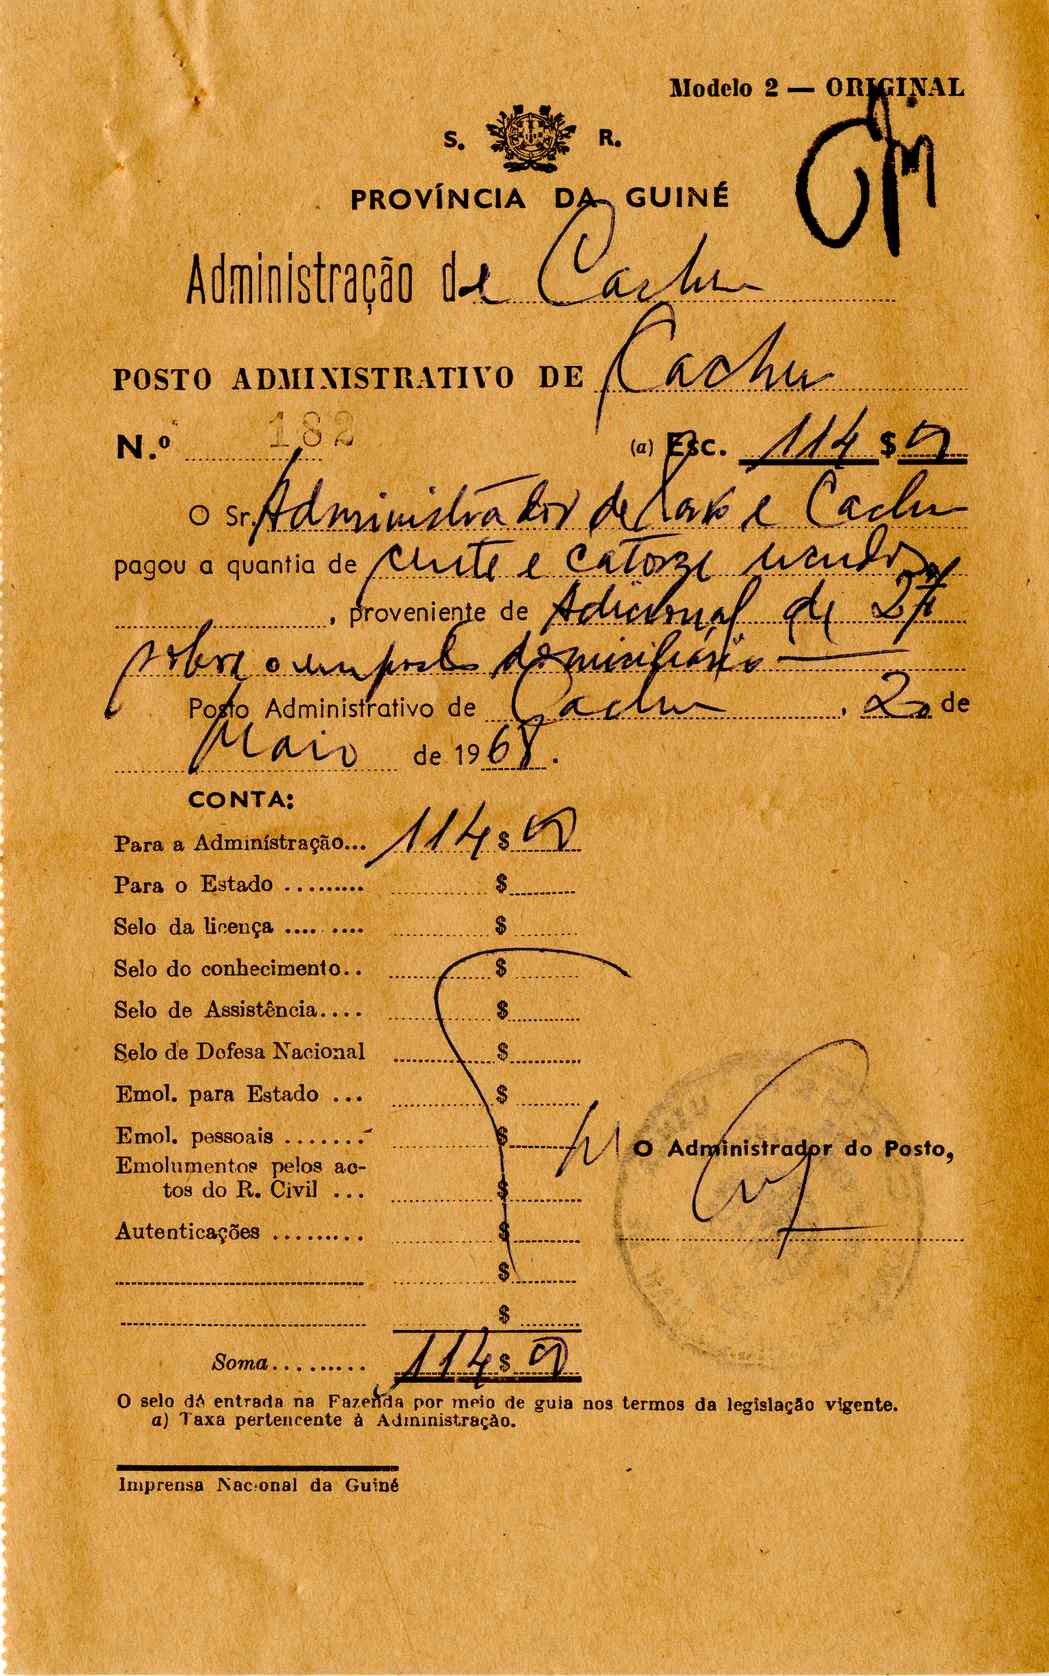 Modelo 2 — ORIGINAL
S. R.
PROVÍNCIA DA GUINÉ
Administração de Cacheu
POSTO ADMINISTRATIVO DE Cacheu
N.º 182 (a) Esc. 114 $ 00
O Sr. Administrador de Cacheu
pagou a quantia de cento e catorze escudos
, proveniente de Adicional de 2%
sobre o imposto domiciliário
Posto Administrativo de Cacheu, 2 de
Maio de 1968.
CONTA:
Para a Administração... 114 $ 00
Para o Estado ......... $
Selo da licença .... .... $
Selo do conhecimento.. $
Selo de Assistência.... $
Selo de Defesa Nacional $
Emol. para Estado ... $
Emol. pessoais ....... $
O Administrador do Posto,
Emolumentos pelos ac-
tos do R. Civil ... $
Autenticações ......... $
$
$
Soma......... 114 $ 00
O selo dá entrada na Fazenda por meio de guia nos termos da legislação vigente.
a) Taxa pertencente à Administração.
Imprensa Nacional da Guiné